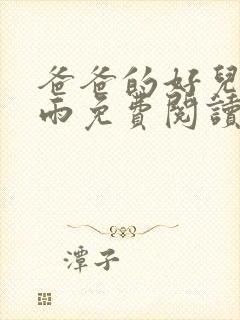 爸爸的好兒
雨免費閱讀
潭子